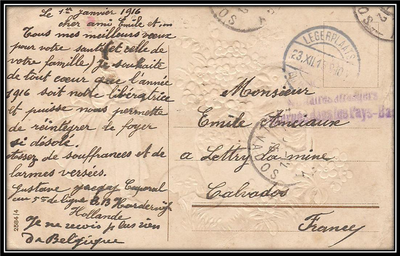 Le 1er janvier 1916
cher ami Emile et
Tous mes meilleurs vœux
pour votre santé et celle de
votre famille) Je souhaite
de tout cœur que l'année
1916 soit notre libératrice
et puisse nous permettre
de réintégrer le foyer
si désolé.
assez de souffrances et de
larmes versées.
Gustave Caporal
au 5e de ligne Harderwijk
Hollande
Je ne reçois plus rien
Da Belgique
Monsieur
Emile Anciaux
a Lettry la mine
Calvados
France
LEGERPLAATS
23.XII.1
Pays-Bas
25841